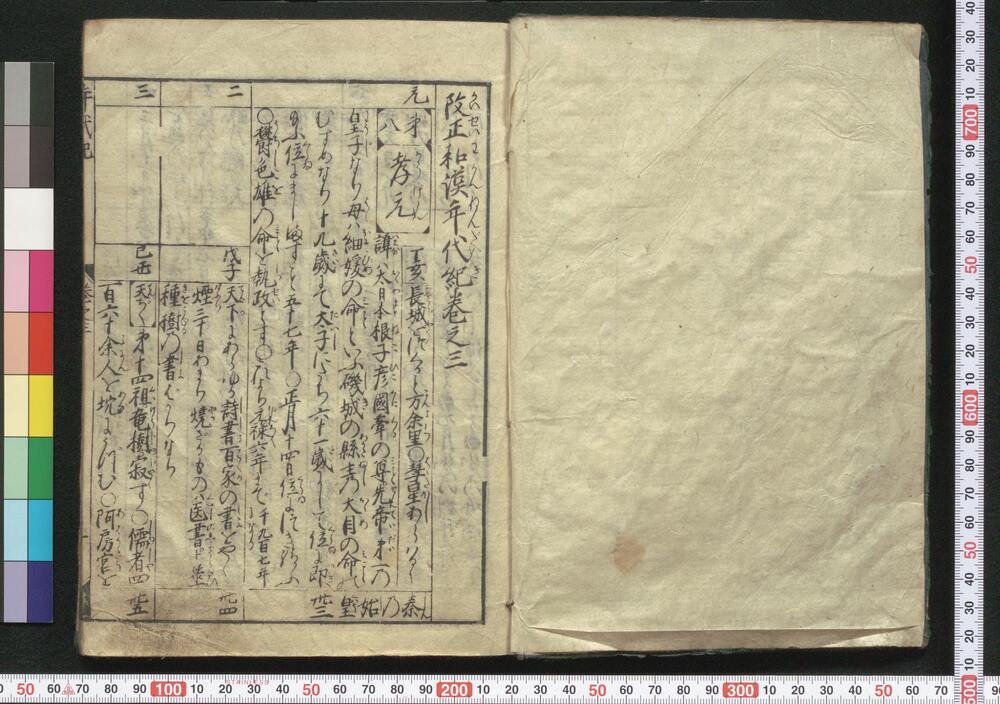 改正和漢年代紀巻之三
元
第八 孝元
丁亥 長城を
万余里〇彗星あらはるゝ
秦の始皇
諱ハ大日本根子彦國牽の尊先帝第一の
皇子なり母ハ細媛の命といふ磯城の縣主大目の命の
むすめなり十九歳にて太子にたち六十一歳にして位に即
卅三
五十七年〇正月十四日位につき給ふ
〇欝色雄の命を執政とす〇これより元禄六年まで千九百七年
二
戊子
天下にあらゆる詩書百家の書をやく
煙三十日あまり焼ざるもの八医書ト筮
種樹の書ばかりなり
卅四
三
己丑
天ぢく第十四祖竜樹寂す〇儒者四
百六十余人を坑にうづむ〇阿房宮を
卅五
年代記
巻之三